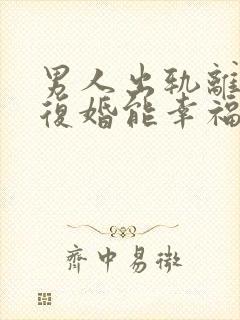 男人出轨離
復婚能幸福
齊中易微